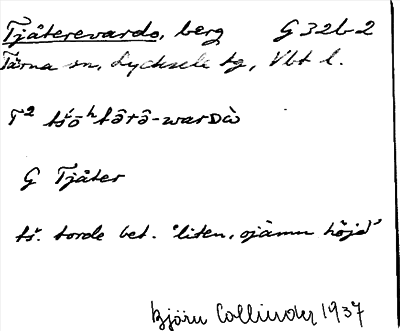 Tjåterevardo, berg G 32b-2
Tärna sn, Lycksele tg, Vbt l.
T² tš́ō̬ʰtə̑rə̑-warDà
G Tjåter
tš́. torde bet. "liten, ojämn höjd"
Björn Collinder 1937